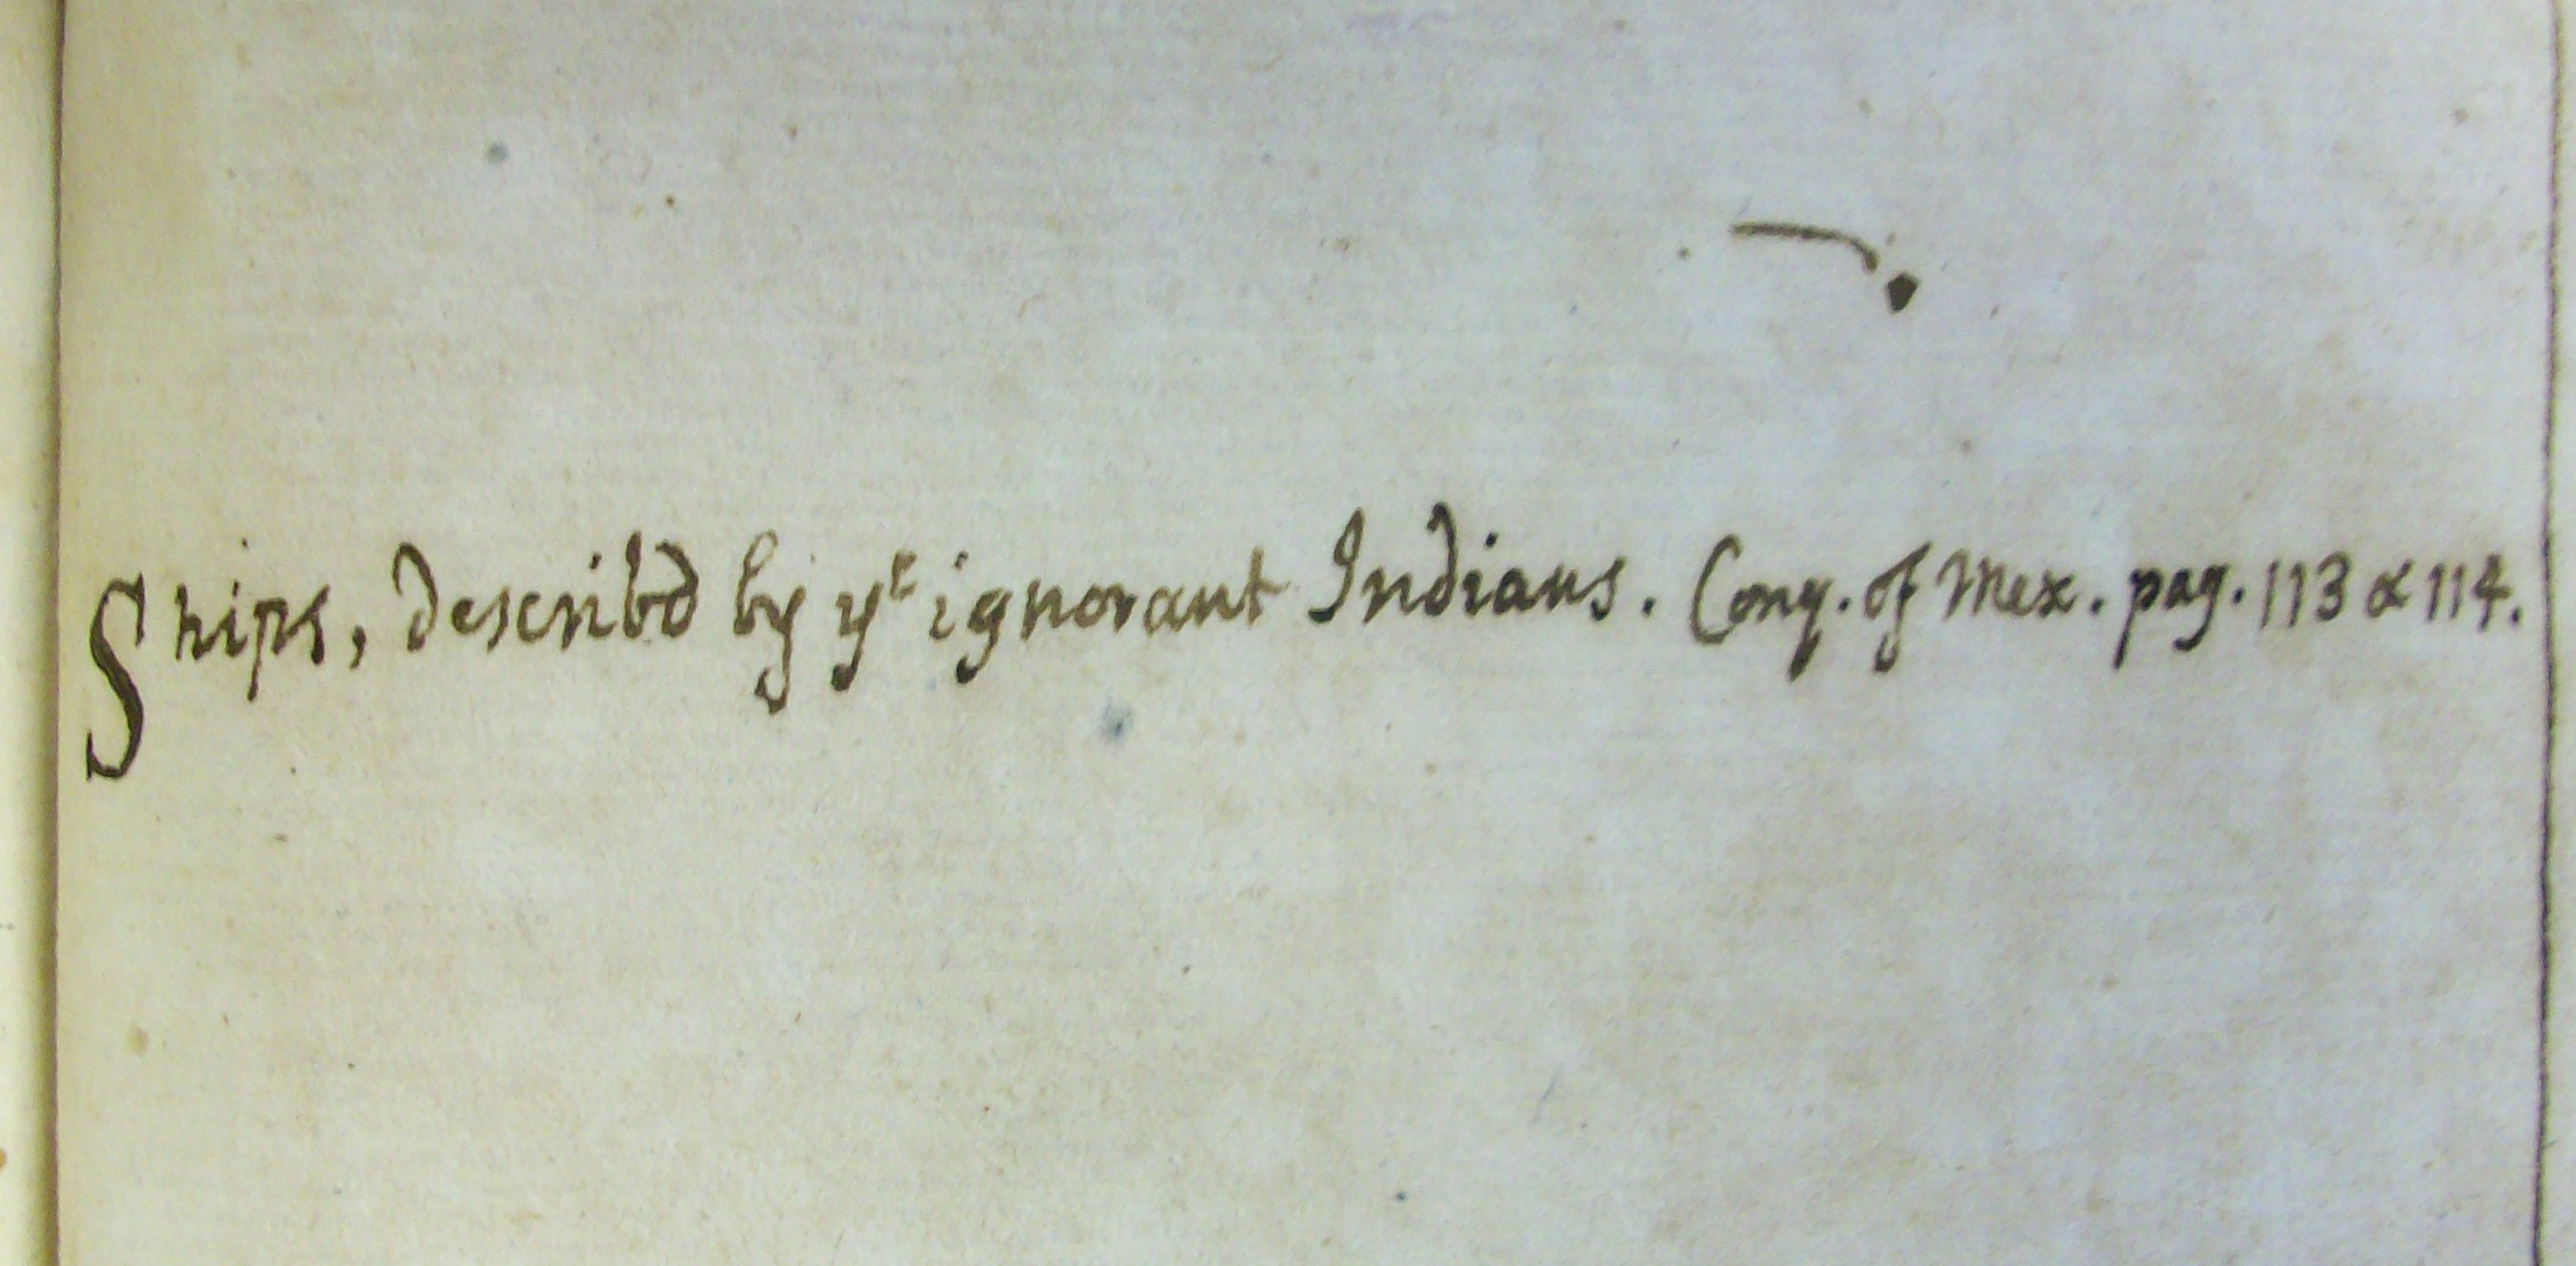 Ships, describd by yᵉ ignorant Indians. Conq. of Mex. pag. 113 & 114.